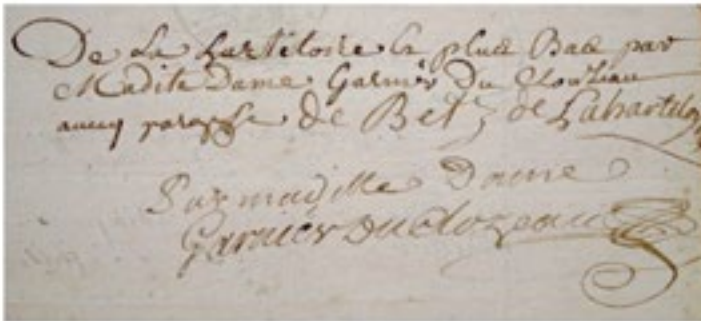 De La harteloire la pluee Bace par
Madite Dame Garnier Du Clouzeau
aueq paraphe de Betz de Lahartelo
Par maditte Dame
Garnier Duclozeau